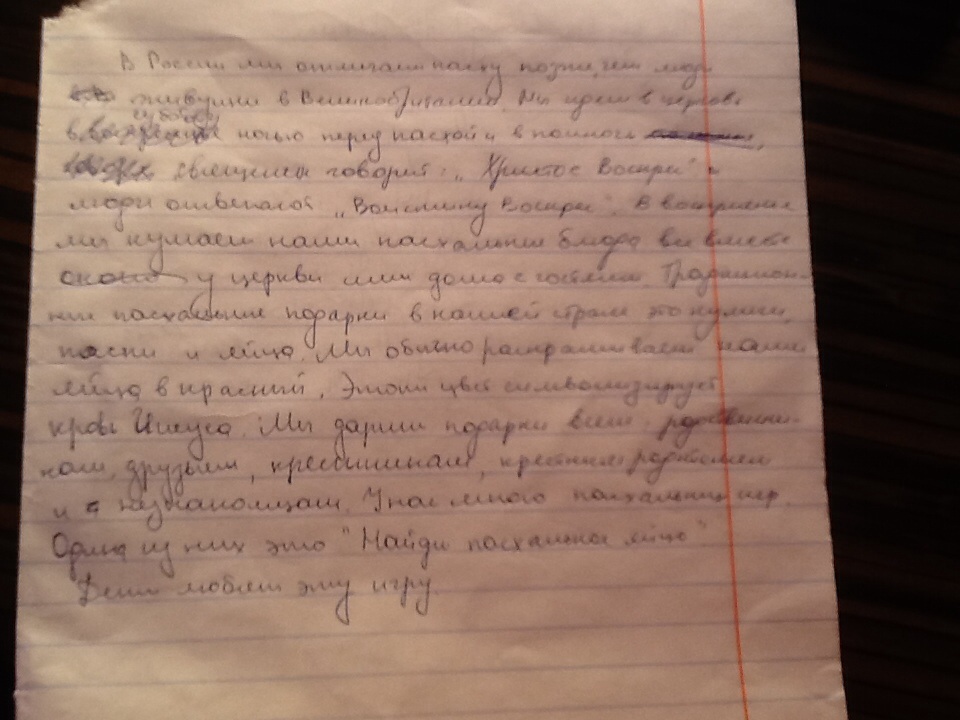 В России мы отмечаем пасху позже, чем люди
живущие в Великобритании. Мы идем в церковь
в субботу ночью перед пасхой и в полночь
священник говорит: „Христос Воскрес" и
люди отвечают „Воистину Воскрес". В воскресенье
мы кушаем наши пасхальные блюда все вместе
у церкви или дома с гостями. Традицион-
ные пасхальные подарки в нашей стране это куличи,
пасхи и яйца. Мы обычно раскрашиваем наши
яйца в красный. Этот цвет символизирует
кровь Иисуса. Мы дарим подарки всем родственни-
кам, друзьям, крестникам, крестным родителям
и незнакомцам. У нас много пасхальных игр.
Одна из них это "Найди пасхальное яйцо"
Дети любят эту игру.